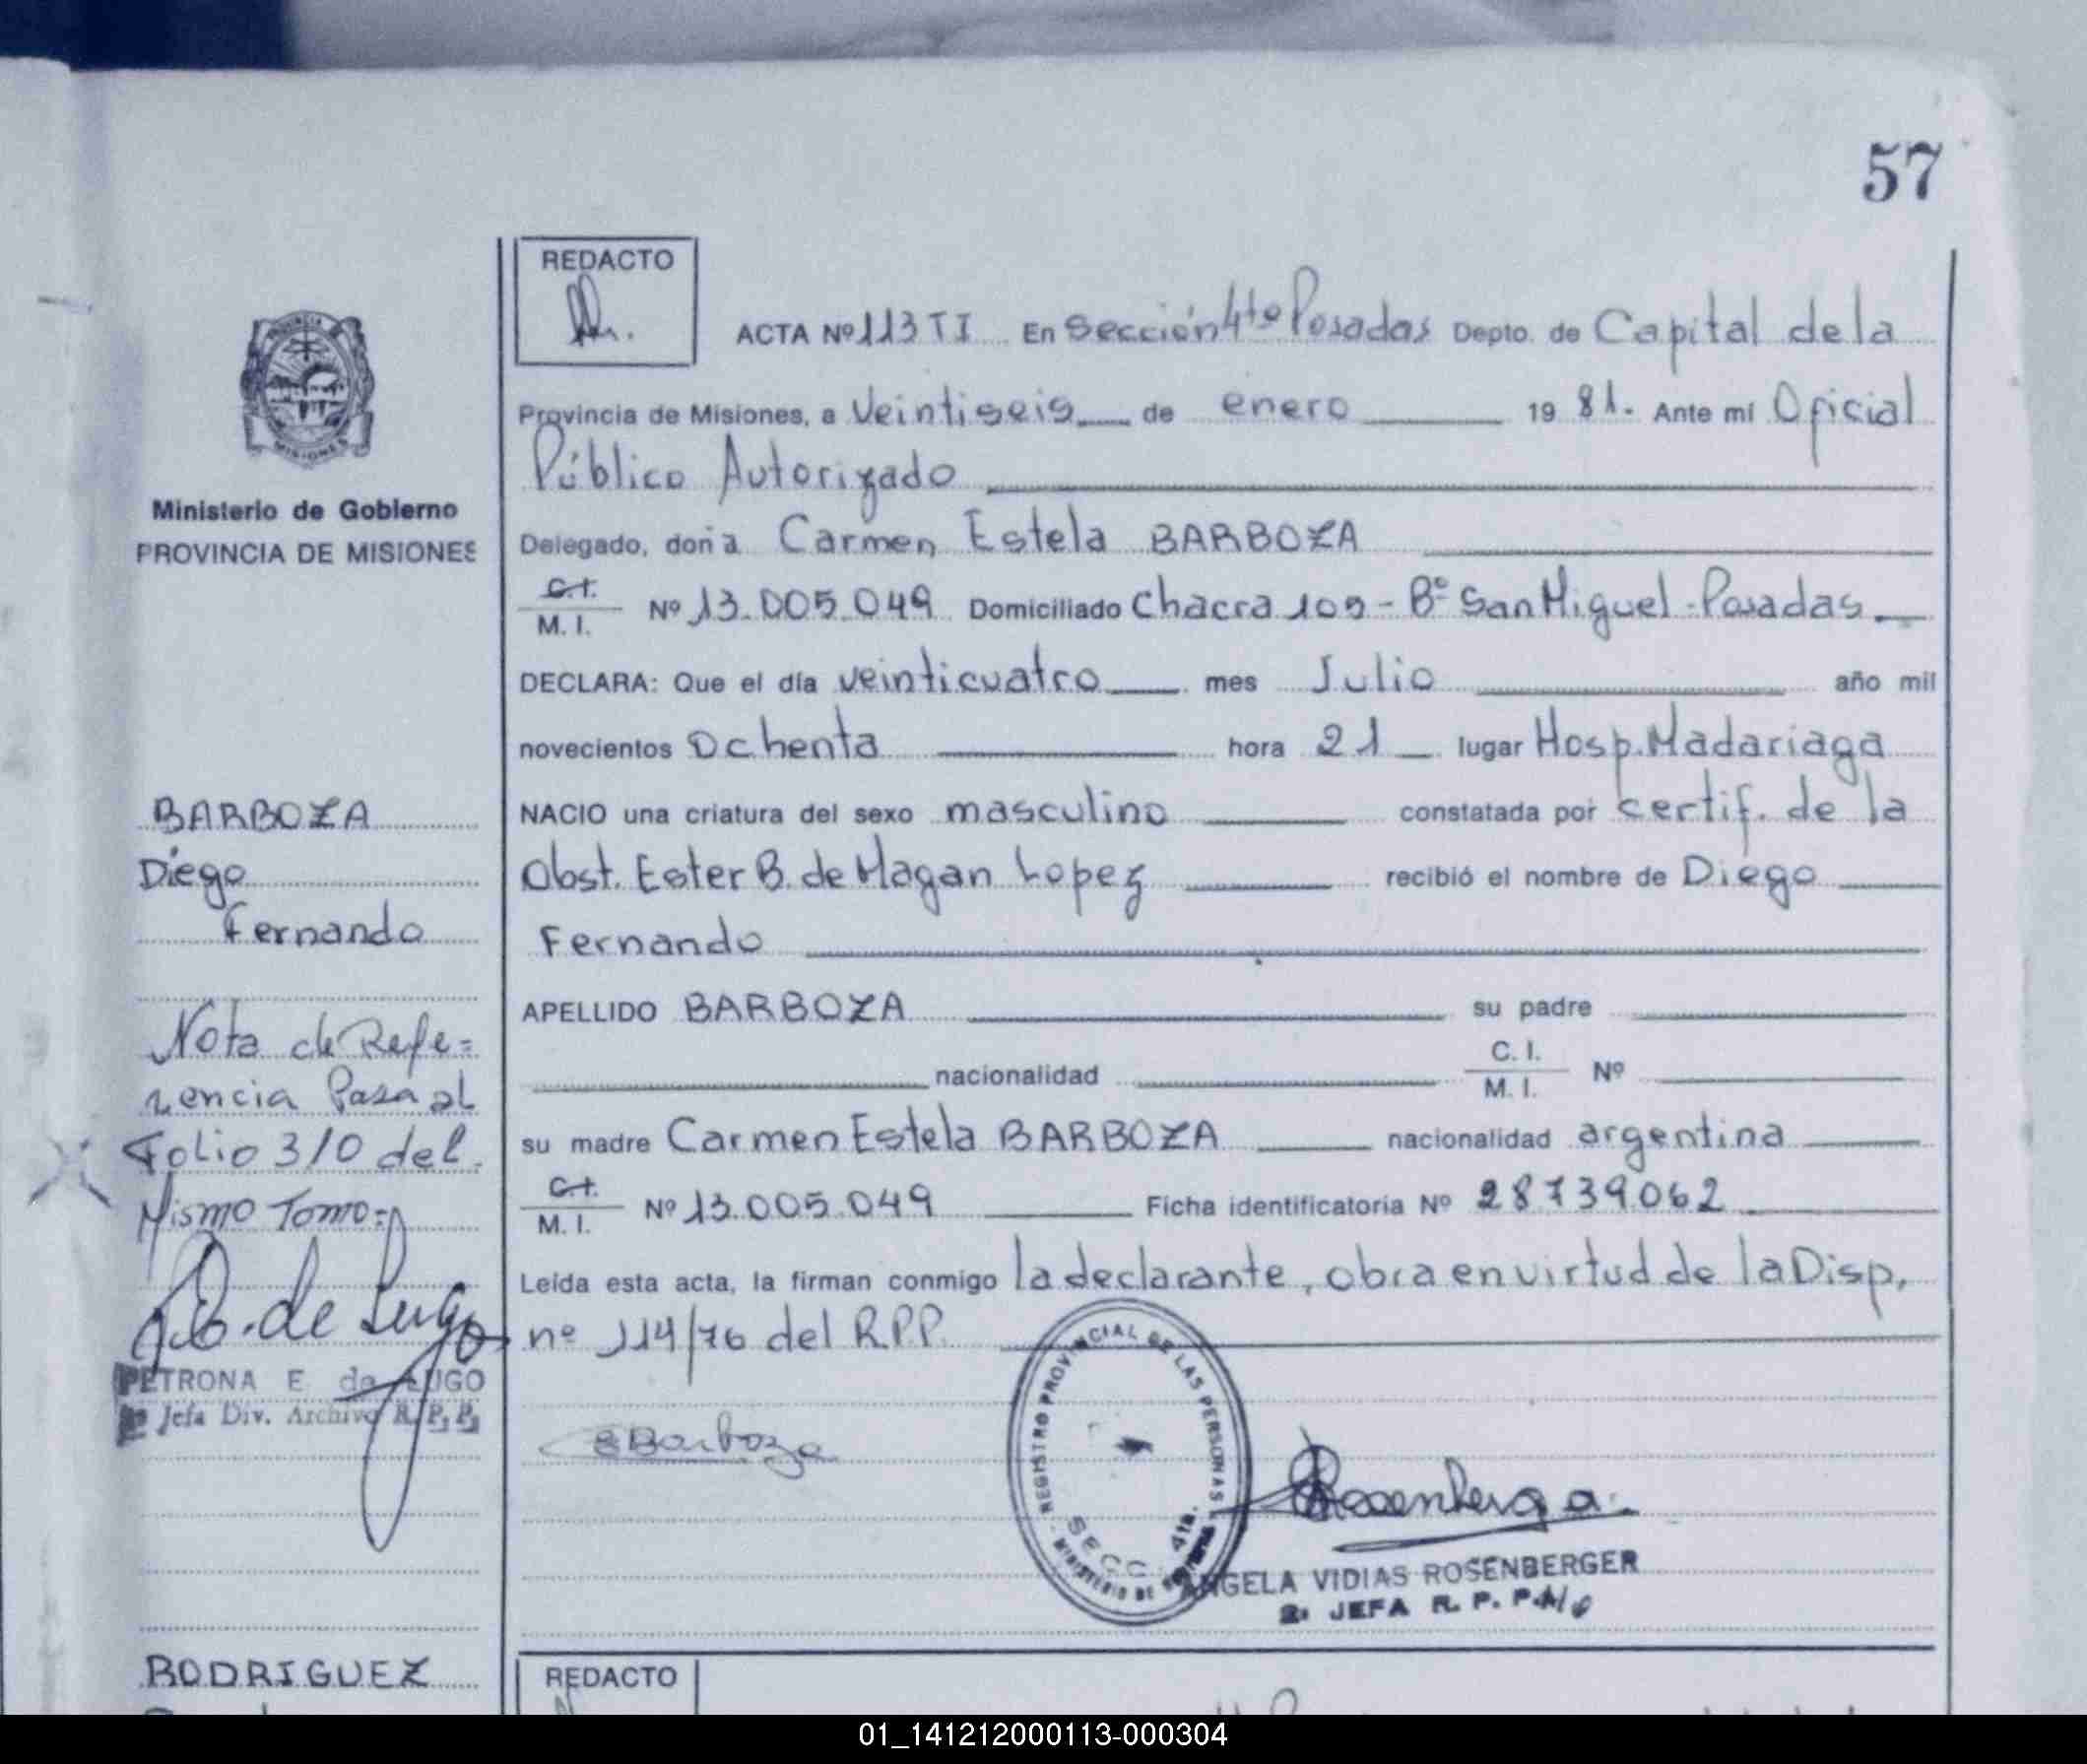 57
REDACTO
ACTA Nº 113 TI En Sección 4ta Posadas Depto. de Capital de la
Provincia de Misiones, a Veintiseis de enero 19 81. Ante mí Oficial
Público Autorizado
Delegado, doña Carmen Estela BARBOZA
C.I. M. I. Nº 13.005.049 Domiciliado Chacra 105 - Bº San Miguel - Posadas
DECLARA: Que el día veinticuatro mes Julio año mil
novecientos Ochenta hora 21 lugar Hosp. Madariaga
NACIO una criatura del sexo masculino constatada por certif. de la
Obst. Ester B. de Magan Lopez recibió el nombre de Diego
Fernando
APELLIDO BARBOZA su padre
nacionalidad C. I. M. I. Nº
su madre Carmen Estela BARBOZA nacionalidad argentina
C.I. M. I. Nº 13.005.049 Ficha identificatoria Nº 28739062
Leída esta acta, la firman conmigo la declarante, obra en virtud de la Disp.
nº 114/76 del R.P.P.
Barboza
REGISTRO PROVINCIAL DE LAS PERSONAS
SECC. 4ta.
MINISTERIO DE
ANGELA VIDIAS ROSENBERGER
JEFA R. P. P.
PROVINCIA
MISIONES
Ministerio de Gobierno
PROVINCIA DE MISIONES
BARBOZA
Diego
Fernando
Nota de Refe=
rencia Pasa al
Folio 310 del
Mismo Tomo=
de Lugo
PETRONA E. de LUGO
Jefa Div. Archivo R. P. P.
RODRIGUEZ
REDACTO
01_141212000113-000304